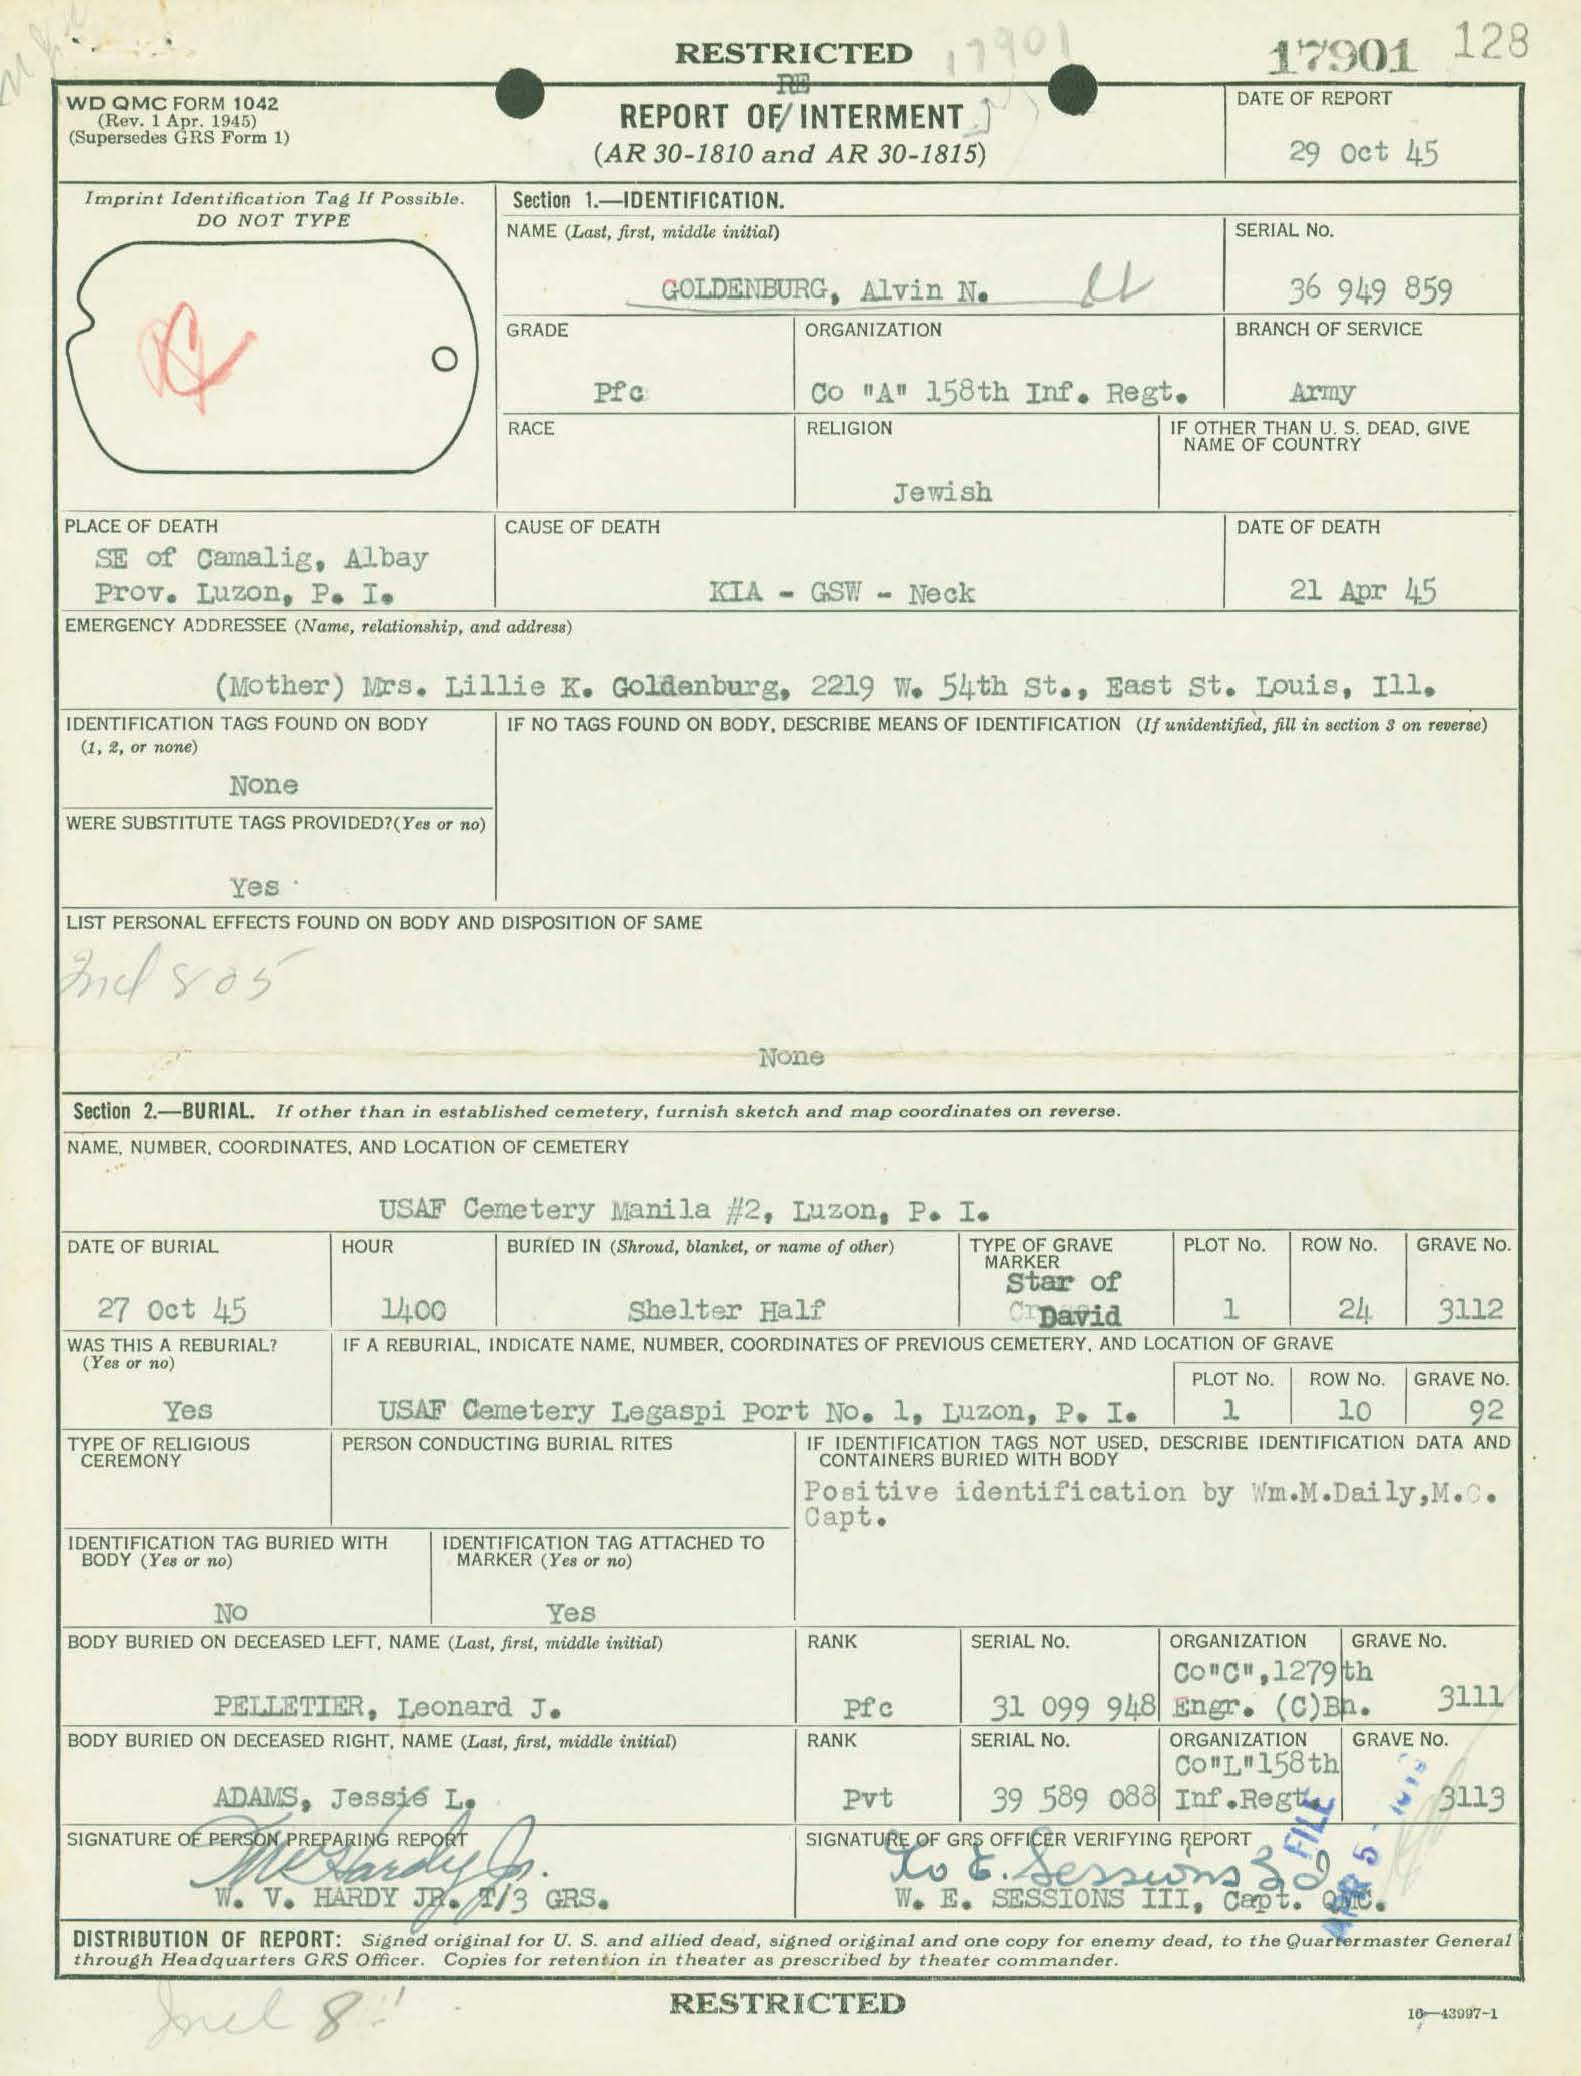 RESTRICTED
17901
17901
128
WD QMC FORM 1042
(Rev. 1 Apr. 1945)
(Supersedes GRS Form 1)
RE
REPORT OF/INTERMENT
(AR 30-1810 and AR 30-1815)
DATE OF REPORT
29 Oct 45
Imprint Identification Tag If Possible.
DO NOT TYPE
Section 1.—IDENTIFICATION.
NAME (Last, first, middle initial)
GOLDENBURG, Alvin N.
SERIAL No.
36 949 859
GRADE
Pfc
ORGANIZATION
Co "A" 158th Inf. Regt.
BRANCH OF SERVICE
Army
RACE
RELIGION
Jewish
IF OTHER THAN U. S. DEAD, GIVE
NAME OF COUNTRY
PLACE OF DEATH
SE of Camalig, Albay
Prov. Luzon, P. I.
CAUSE OF DEATH
KIA - GSW - Neck
DATE OF DEATH
21 Apr 45
EMERGENCY ADDRESSEE (Name, relationship, and address)
(Mother) Mrs. Lillie K. Goldenburg, 2219 W. 54th St., East St. Louis, Ill.
IDENTIFICATION TAGS FOUND ON BODY
(1, 2, or none)
None
IF NO TAGS FOUND ON BODY, DESCRIBE MEANS OF IDENTIFICATION (If unidentified, fill in section 3 on reverse)
WERE SUBSTITUTE TAGS PROVIDED?(Yes or no)
Yes
LIST PERSONAL EFFECTS FOUND ON BODY AND DISPOSITION OF SAME
Incl 805
None
Section 2.—BURIAL. If other than in established cemetery, furnish sketch and map coordinates on reverse.
NAME, NUMBER, COORDINATES, AND LOCATION OF CEMETERY
USAF Cemetery Manila #2, Luzon, P. I.
DATE OF BURIAL
27 Oct 45
HOUR
1400
BURIED IN (Shroud, blanket, or name of other)
Shelter Half
TYPE OF GRAVE
MARKER
Star of
David
PLOT No.
1
ROW No.
24
GRAVE No.
3112
WAS THIS A REBURIAL?
(Yes or no)
Yes
IF A REBURIAL, INDICATE NAME, NUMBER, COORDINATES OF PREVIOUS CEMETERY, AND LOCATION OF GRAVE
USAF Cemetery Legaspi Port No. 1, Luzon, P. I.
PLOT No.
1
ROW No.
10
GRAVE No.
92
TYPE OF RELIGIOUS
CEREMONY
PERSON CONDUCTING BURIAL RITES
IF IDENTIFICATION TAGS NOT USED, DESCRIBE IDENTIFICATION DATA AND
CONTAINERS BURIED WITH BODY
Positive identification by Wm.M.Daily,M.C.
Capt.
IDENTIFICATION TAG BURIED WITH
BODY (Yes or no)
No
IDENTIFICATION TAG ATTACHED TO
MARKER (Yes or no)
Yes
BODY BURIED ON DECEASED LEFT, NAME (Last, first, middle initial)
PELLETIER, Leonard J.
RANK
Pfc
SERIAL No.
31 099 948
ORGANIZATION
Co"C",1279th
Engr. (C)Bn.
GRAVE No.
3111
BODY BURIED ON DECEASED RIGHT, NAME (Last, first, middle initial)
ADAMS, Jessie L.
RANK
Pvt
SERIAL No.
39 589 088
ORGANIZATION
Co"L"158th
Inf.Regt.
GRAVE No.
3113
SIGNATURE OF PERSON PREPARING REPORT
W. V. HARDY JR. T/3 GRS.
SIGNATURE OF GRS OFFICER VERIFYING REPORT
W. E. Sessions 3d
W. E. SESSIONS III, Capt. QMC.
FILE
APR 5
DISTRIBUTION OF REPORT: Signed original for U. S. and allied dead, signed original and one copy for enemy dead, to the Quartermaster General
through Headquarters GRS Officer. Copies for retention in theater as prescribed by theater commander.
Incl 8
RESTRICTED
16—43997-1